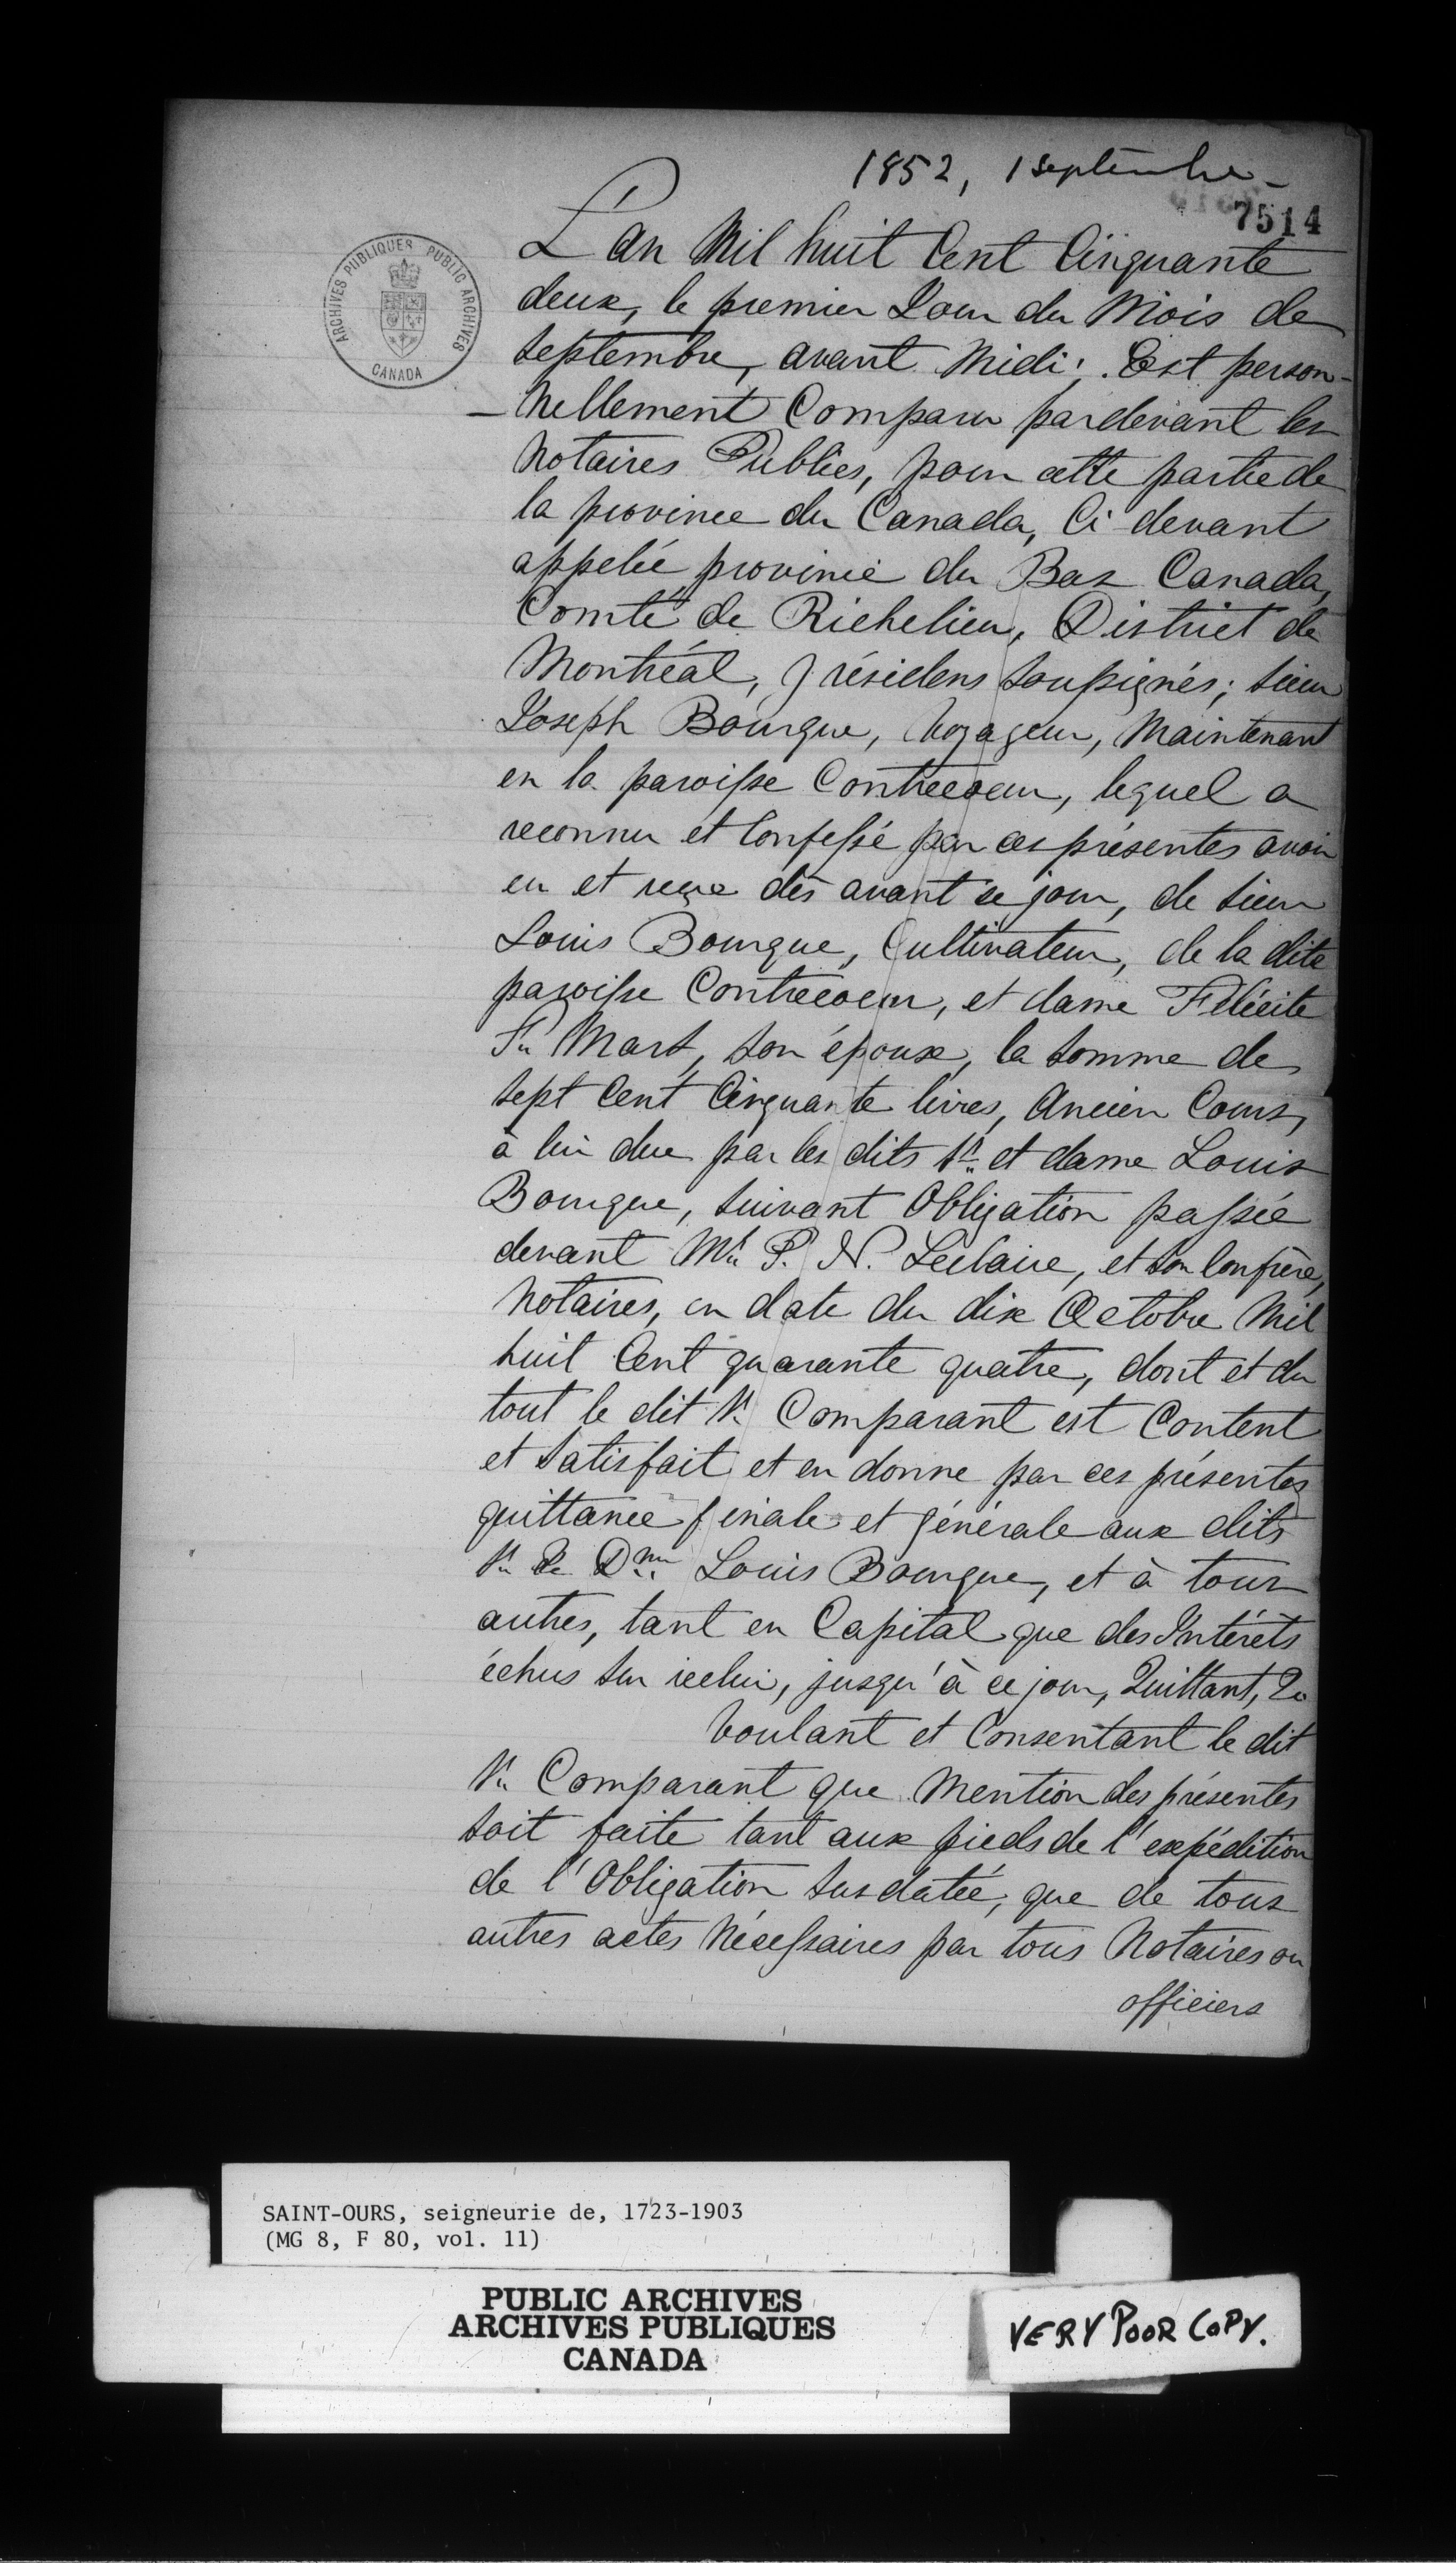 1852, 1 septembre -
7514
ARCHIVES PUBLIQUES PUBLIC ARCHIVES
CANADA
L'an Mil huit Cent Cinquante
deux, le premier Jour du Mois de
Septembre, avant Midi; Est person-
-nellement Comparu pardevant les
Notaires Publics, pour cette partie de
la province du Canada, Ci devant
appelée province du Bas Canada,
Comté de Richelieu, District de
Montréal, y résidens soussignés; Sieur
Joseph Bourque, Voyageur, Maintenant
en la paroisse Contrecoeur, lequel a
reconnu et Confessé par ces présentes avoir
eu et reçu dès avant ce jour, de Sieur
Louis Bourque, Cultivateur, de la dite
paroisse Contrecoeur, et dame Félicité
St Mars, son épouse, la somme de
Sept Cent Cinquante livres, Ancien Cours,
à lui due par les dits Sr. et dame Louis
Bourque, Suivant Obligation passée
devant Mtre P. N. Leclaire, et son Confrère,
Notaires, en date du dix Octobre Mil
huit Cent quarante quatre, dont et du
tout le dit Sr. Comparant est Content
et Satisfait et en donne par ces présentes
quittance finale et générale aux dits
Sr. & Dme Louis Bourque, et à tous
autres, tant en Capital que des Intérêts
échus sur icelui, jusqu'à ce jour, Quittant, &c
Voulant et Consentant le dit
Sr. Comparant que Mention des présentes
soit faite tant aux pieds de l'expédition
de l'Obligation Susdatée, que de tous
autres actes Nécessaires par tous Notaires ou
officiers
SAINT-OURS, seigneurie de, 1723-1903
(MG 8, F 80, vol. 11)
PUBLIC ARCHIVES
ARCHIVES PUBLIQUES
CANADA
VERY POOR COPY.